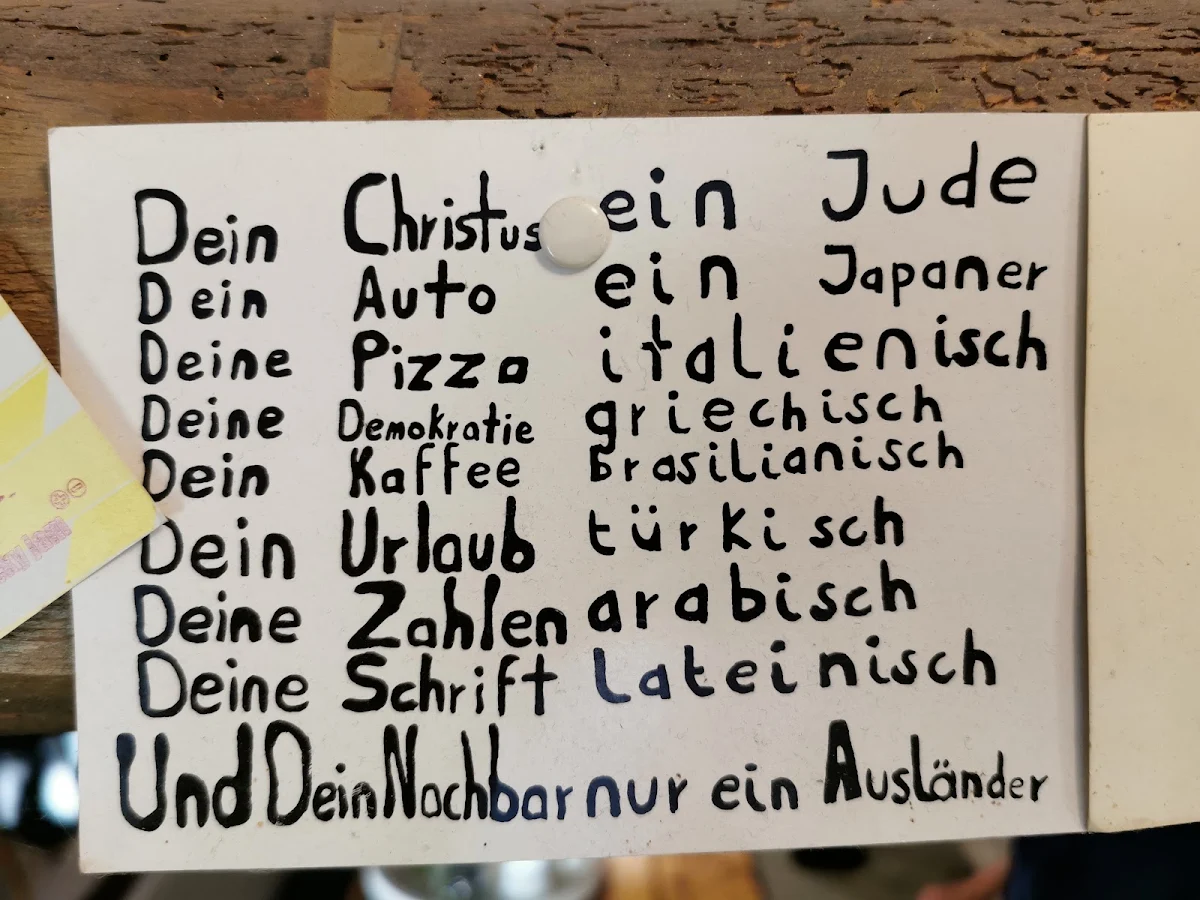 Dein Christus ein Jude
Dein Auto ein Japaner
Deine Pizza italienisch
Deine Demokratie griechisch
Dein Kaffee brasilianisch
Dein Urlaub türkisch
Deine Zahlen arabisch
Deine Schrift lateinisch
Und Dein Nachbar nur ein Ausländer